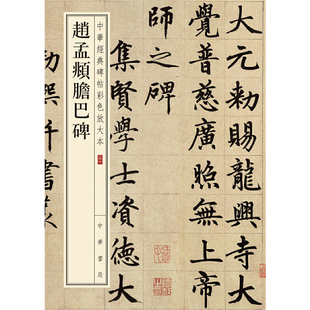 大元勅賜龍興寺大
覺普慈廣照無上帝
師之碑
集賢學士資德大
勅撰并書篆
中華經典碑帖彩色放大本
趙孟頫膽巴碑
中華書局